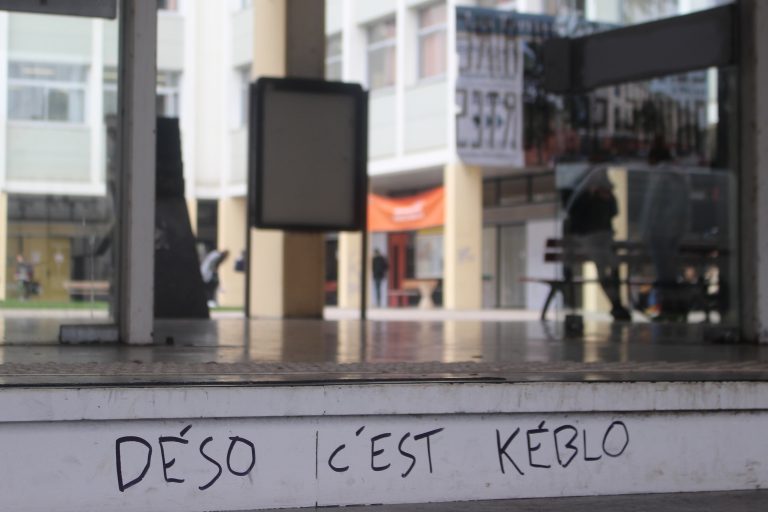 DÉSO C'EST KÉBLO